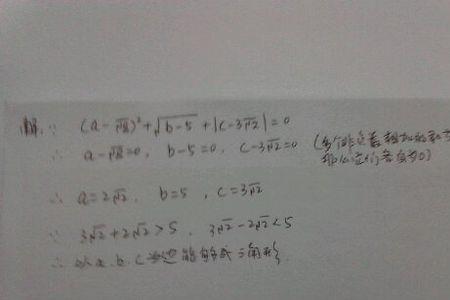 解: ∵ (a-√8)²+√b-5+|c-3√2|=0
∴ a-√8=0, b-5=0, c-3√2=0 (多个非负数相加和为
那么它们各自为0)
∴ a=2√2, b=5, c=3√2
∵ 3√2+2√2>5, 3√2-2√2<5
∴ 以a.b.c为边能构成三角形.